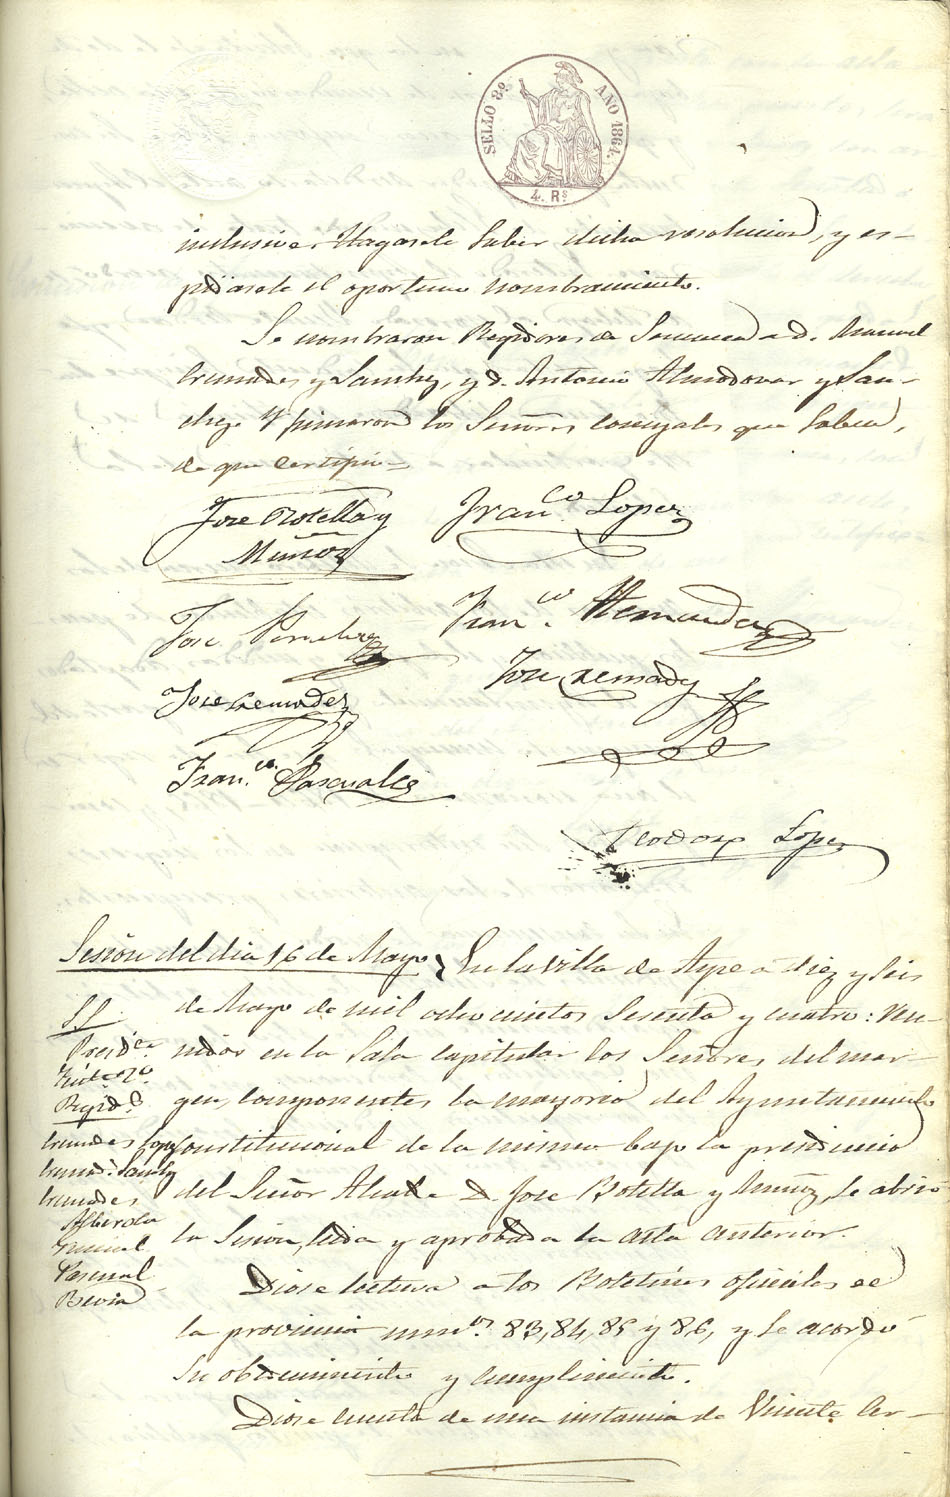 SELLO 8º AÑO 1864.
4. Rs
inclusive. Hagasele saber dicha resolucion, y es-
pidasele el oportuno nombramiento.
Se nombraron Regidores de Semana a D. Manuel
Cremades y Sanchez, y D. Antonio Almodovar y San-
chez. Y firmaron los Señores Concejales que saben,
de que certifico=
Jose Botella y
Muñoz
Franco. Lopez
Jose
Franco. Hernandez
Jose Cremades
Jose Cremades
Franco. Pascual
Teodoro Lopez
Sesion del dia 16 de Mayo En la Villa de Aspe a diez y seis
de Mayo de mil ochocientos sesenta y cuatro: reu-
nidos en la Sala capitular los Señores del mar-
gen, componentes la mayoria del Ayuntamiento
constitucional de la misma bajo la presidencia
del Señor Alcalde D. Jose Botella y Muñoz, se abrio
la Sesion, leida y aprobada la acta anterior.
SS.
Presidte.
Regids.
Cremades Lopez
Cremads. Sanchez
Cremades
Alberola
Pascual
Bevia
Diose lectura a los Boletines oficiales de
la provincia numos. 83, 84, 85 y 86, y se acordó
su obedecimiento y cumplimiento.
Diose cuenta de una instancia de Vicente Cer-